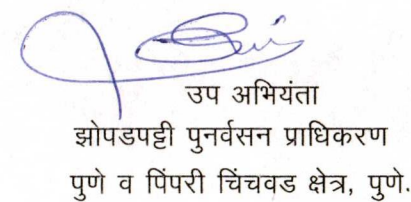 उप अभियंता
झोपडपट्टी पुनर्वसन प्राधिकरण
पुणे व पिंपरी चिंचवड क्षेत्र, पुणे.